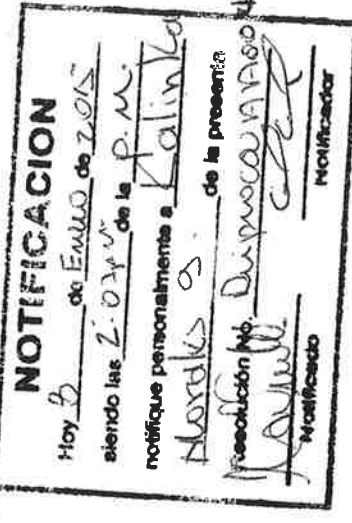 NOTIFICACION
Hoy de Enero de 2015
siendo las 2:07pm de la P.M.
notifique personalmente a Kalinka
Morales G. de la presente
Resolución No.
Notificado Notificador